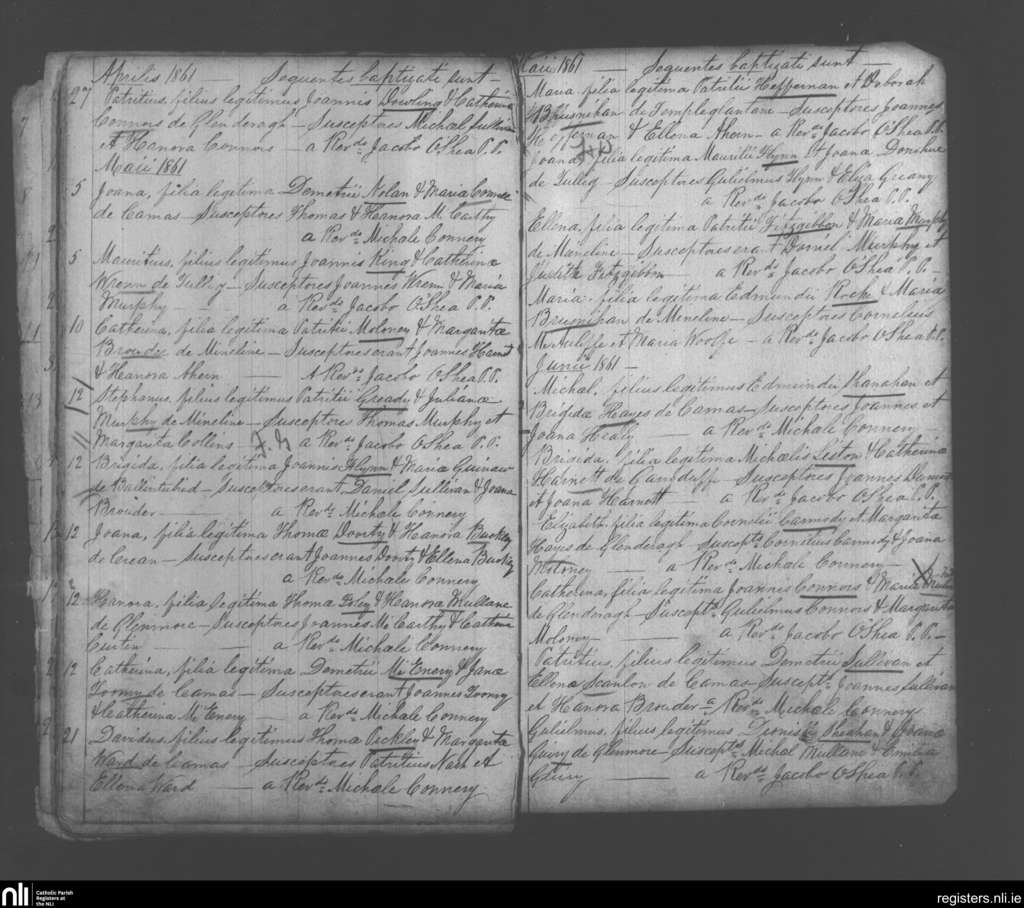 Aprilis 1861 — Sequentes baptizati sunt —
27 Patritius, filius legitimus Joannis Dowling & Catherina
Connors de Glenderagh — Susceptores Michael Sullivan
et Hanora Connors — a Revdo Jacobo O'Shea P.P.
Maii 1861
5 Joana, filia legitima Demetrii Nolan & Maria Connell
de Camas — Susceptores Thomas & Hanora McCarthy
a Revdo Michale Connery
5 Mauritius, filius legitimus Joannis King & Catherinæ
Wrenn de Tullig — Susceptores Joannes Wrenn & Maria
Murphy — a Revdo Jacobo O'Shea P.P.
10 Catherina, filia legitima Patritii Moloney & Margaritæ
Broudee de Mineline — Susceptores erant Joannes
& Hanora Ahern — A Revdo Jacobo O'Shea P.P.
12 Stephanus, filius legitimus Patritii Gready & Julianæ
Murphy de Mineline — Susceptores Thomas Murphy et
Margarita Collins — a Revdo Jacobo O'Shea P.P.
12 Brigida, filia legitima Joannis Flynn & Maria Guinaw
de Ballintubrid — Susceptores erant Daniel Sullivan & Joana
Brouder — a Revdo Michale Connery
12 Joana, filia legitima Thomæ Dority & Hanora Buckley
de Crean — Susceptores erant Joannes Dority & Ellena Buckley
a Revdo Michale Connery
12 Hanora, filia legitima Thoma Foley & Hanora Mullane
de Glenmore — Susceptores Joannes McCarthy & Catherine
Curtin — a Revdo Michale Connery
12 Catherina, filia legitima Demetrii McEnery & Jana
Toomy de Camas — Susceptores erant Joannes Toomy
& Catherina McEnery — a Revdo Michale Connery
21 Davidus, filius legitimus Thoma Peckley & Margarita
Ward de Camas — Susceptores Patritius Nash et
Ellena Ward — a Revdo Michale Connery
Maii 1861 — Sequentes baptizati sunt —
Maria, filia legitima Patritii Heffernan et Deborah
Brusnihan de Templeglantane — Susceptores Joannes
Heffernan & Ellena Ahern — a Revdo Jacobo O'Shea P.P.
Joana, filia legitima Mauritii Flynn et Joana Donohue
de Tullig — Susceptores Gulielmus Flynn & Eliza Greany
a Revdo Jacobo O'Shea P.P.
Ellena, filia legitima Patritii Fitzgibbon & Maria Murphy
de Mineline — Susceptores erant Daniel Murphy et
Judith Fitzgibbon — a Revdo Jacobo O'Shea P.P. —
Maria, filia legitima Edmundii Roche & Maria
Brusnihan de Mineline — Susceptores Cornelius
McAuliffe et Maria Woolfe — a Revdo Jacobo O'Shea P.P.
Junii 1861 —
Michal, filius legitimus Edmundii Shanahan et
Brigida Hayes de Camas — Susceptores Joannes et
Joana Healy — a Revdo Michale Connery —
Brigida, filia legitima Michaelis Liston & Catherinæ
Harnett de Gardduffe — Susceptores Joannes
et Joana Harnott — a Revdo Jacobo O'Shea P.P.
Elizabeth, filia legitima Cornelii Carmody et Margarita
Hayes de Glenderagh — Susceptes Cornelius Carmody & Joana
Moloney — a Revdo Michale Connery —
Catherina, filia legitima Joannis Connors & Maria
de Glenderagh — Susceptes Gulielmus Connors & Margarita
Moloney — a Revdo Jacobo O'Shea P.P. —
Patritius, filius legitimus Demetrii Sullivan et
Ellena Scanlon de Camas — Susceptes Joannes Sullivan
et Hanora Brouder — a Revdo Michale Connery
Gulielmus, filius legitimus Dionisii Sheahan & Joana
Guiry de Glenmore — Susceptes Michal Mullane &
Guiry — a Revdo Jacobo O'Shea P.P.
nli
Catholic Parish
Registers at
the NLI
registers.nli.ie